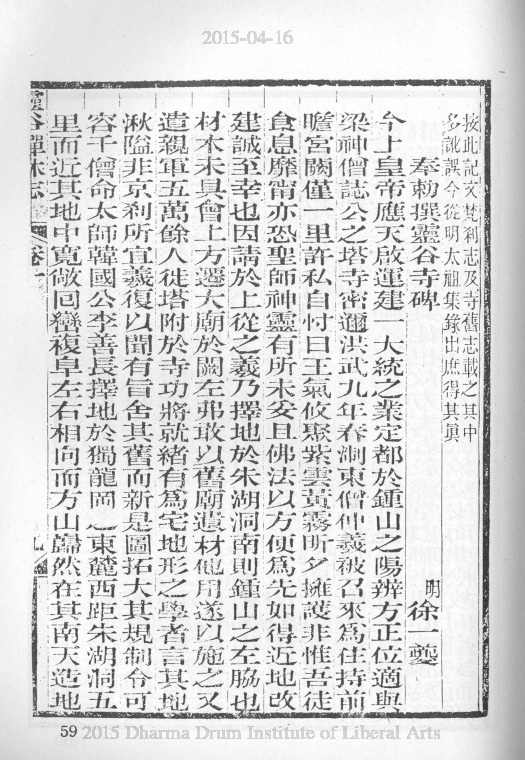 2015-04-16
按此記文梵刹志及寺舊志載之其中
多訛誤今從明太祖集錄出庶得其真
奉勅撰靈谷寺碑
明 徐一夔
今上皇帝應天啟運建一大統之業定都於鍾山之陽辨方正位適與
梁神僧誌公之塔寺密邇洪武九年春淛東僧仲羲被召來為住持前
瞻宮闕僅一里許私自忖曰王氣攸聚紫雲黃霧昕夕擁護非惟吾徒
食息靡甯亦恐聖師神靈有所未妥且佛法以方便為先如得近地改
建誠至幸也因請於上從之羲乃擇地於朱湖洞南則鍾山之左脇也
材木未具會上方遷太廟於闕左弗敢以舊廟遺材他用遂以施之又
遣親軍五萬餘人徙塔附於寺功將就緒有為宅地形之學者言其地
湫隘非京刹所宜羲復以聞有旨舍其舊而新是圖拓大其規制令可
容千僧命太師韓國公李善長擇地於獨龍岡之東麓西距朱湖洞五
里而近其地中寬敞回巒複阜左右相向而方山巋然在其南天造地
靈谷禪林志 卷十 九
59 2015 Dharma Drum Institute of Liberal Arts